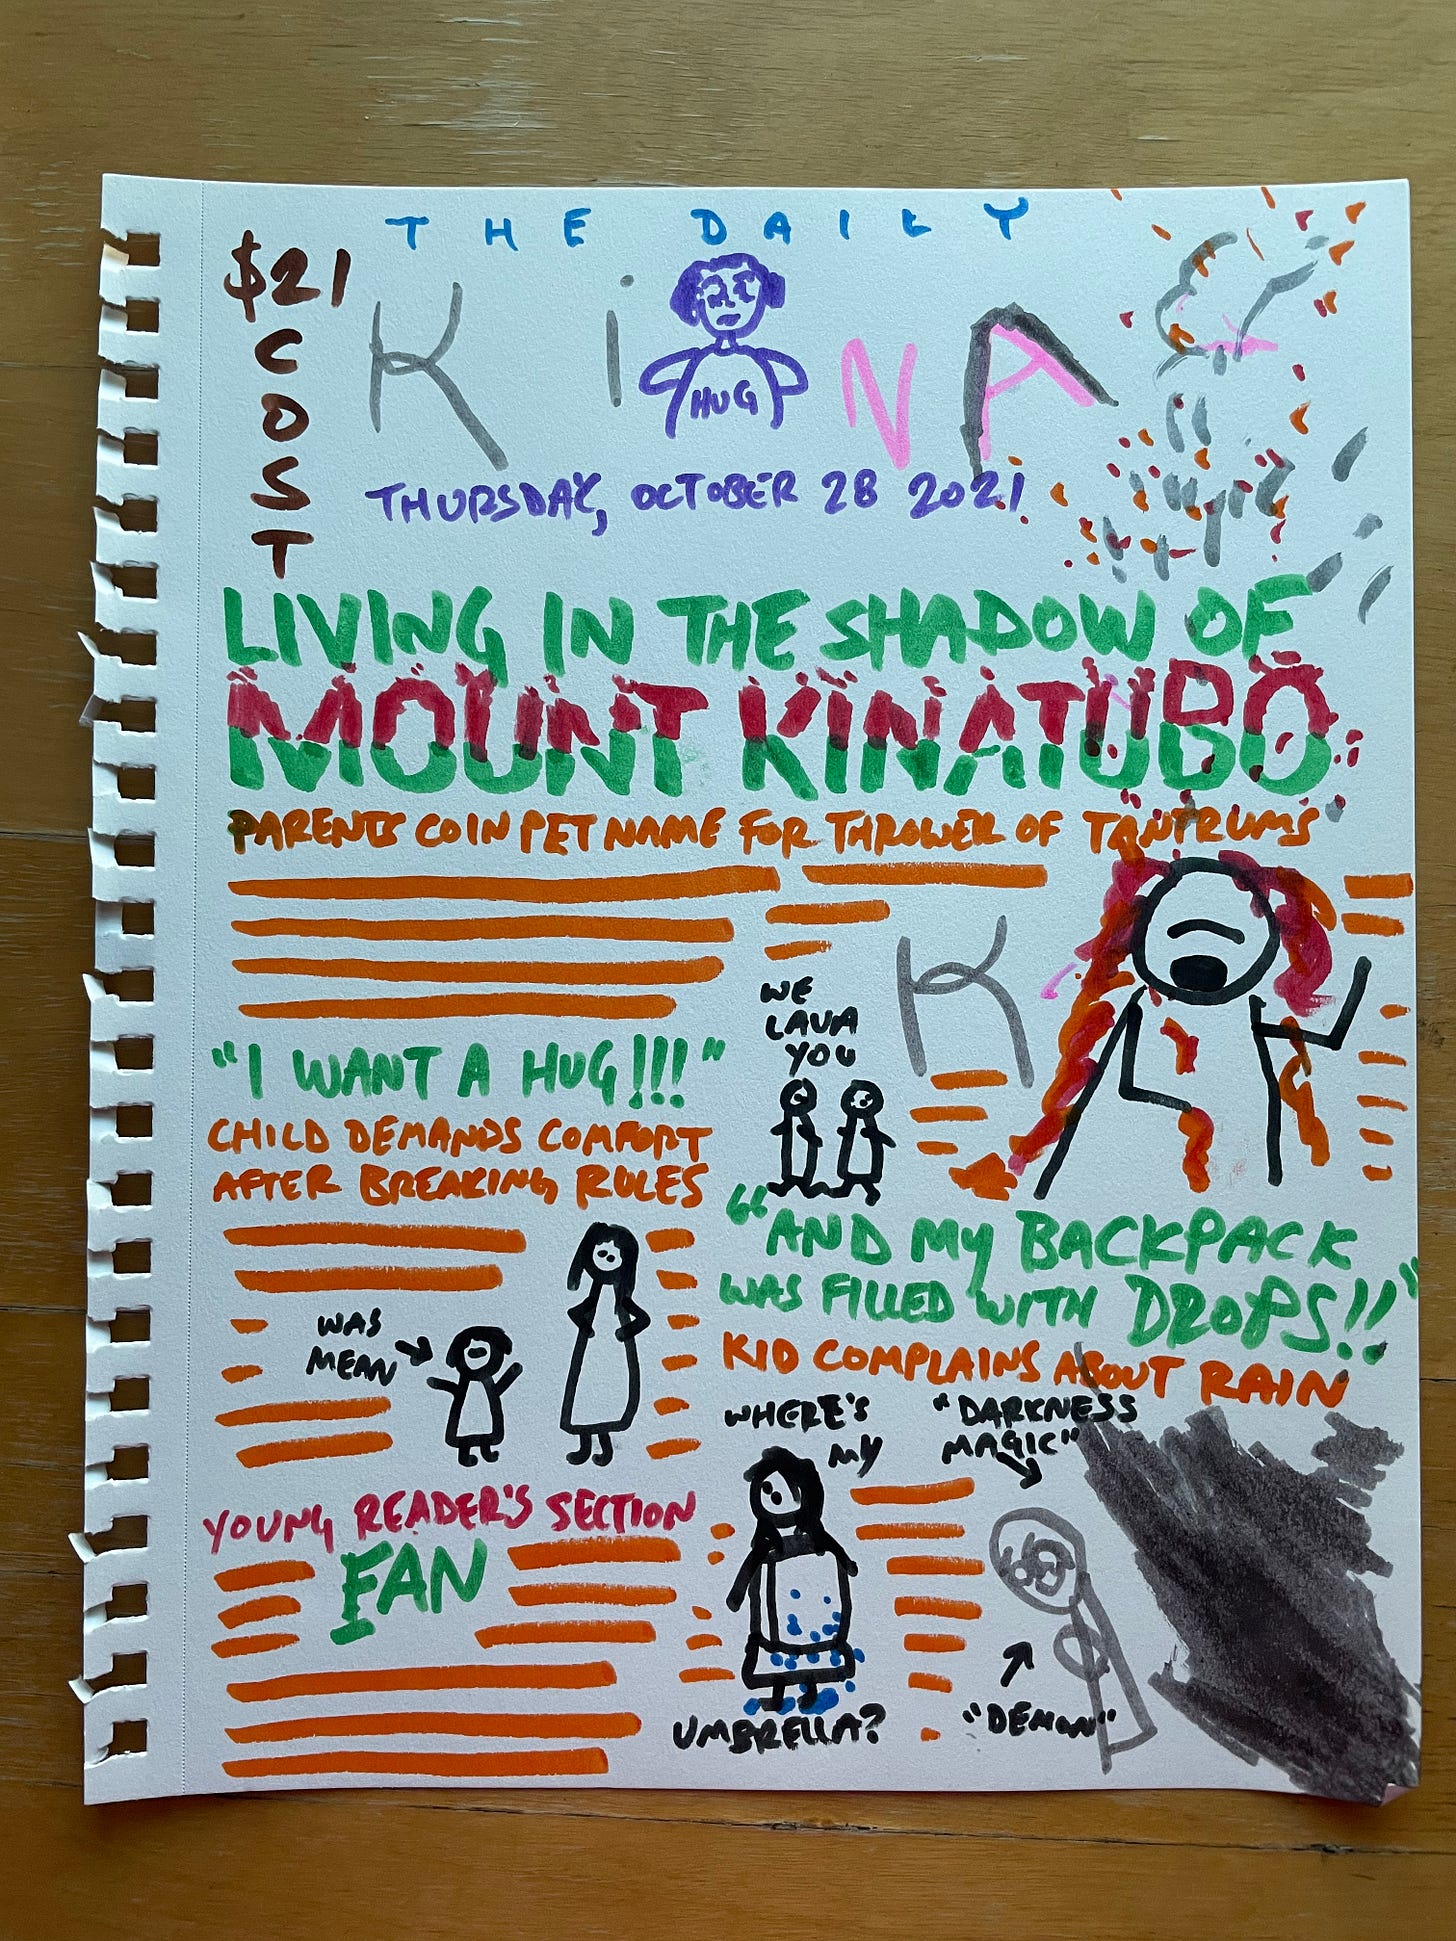 THE DAILY
$21
COST
KiNA
HUG
THURSDAY, OCTOBER 28 2021
LIVING IN THE SHADOW OF
MOUNT KINATUBO
PARENTS COIN PET NAME FOR THROWER OF TANTRUMS
K
WE
LAVA
YOU
"I WANT A HUG!!!"
CHILD DEMANDS COMFORT
AFTER BREAKING RULES
WAS
MEAN
"AND MY BACKPACK
WAS FILLED WITH DROPS!!"
KID COMPLAINS ABOUT RAIN
WHERE'S
MY
UMBRELLA?
"DARKNESS
MAGIC"
"DEMON"
YOUNG READER'S SECTION
FAN